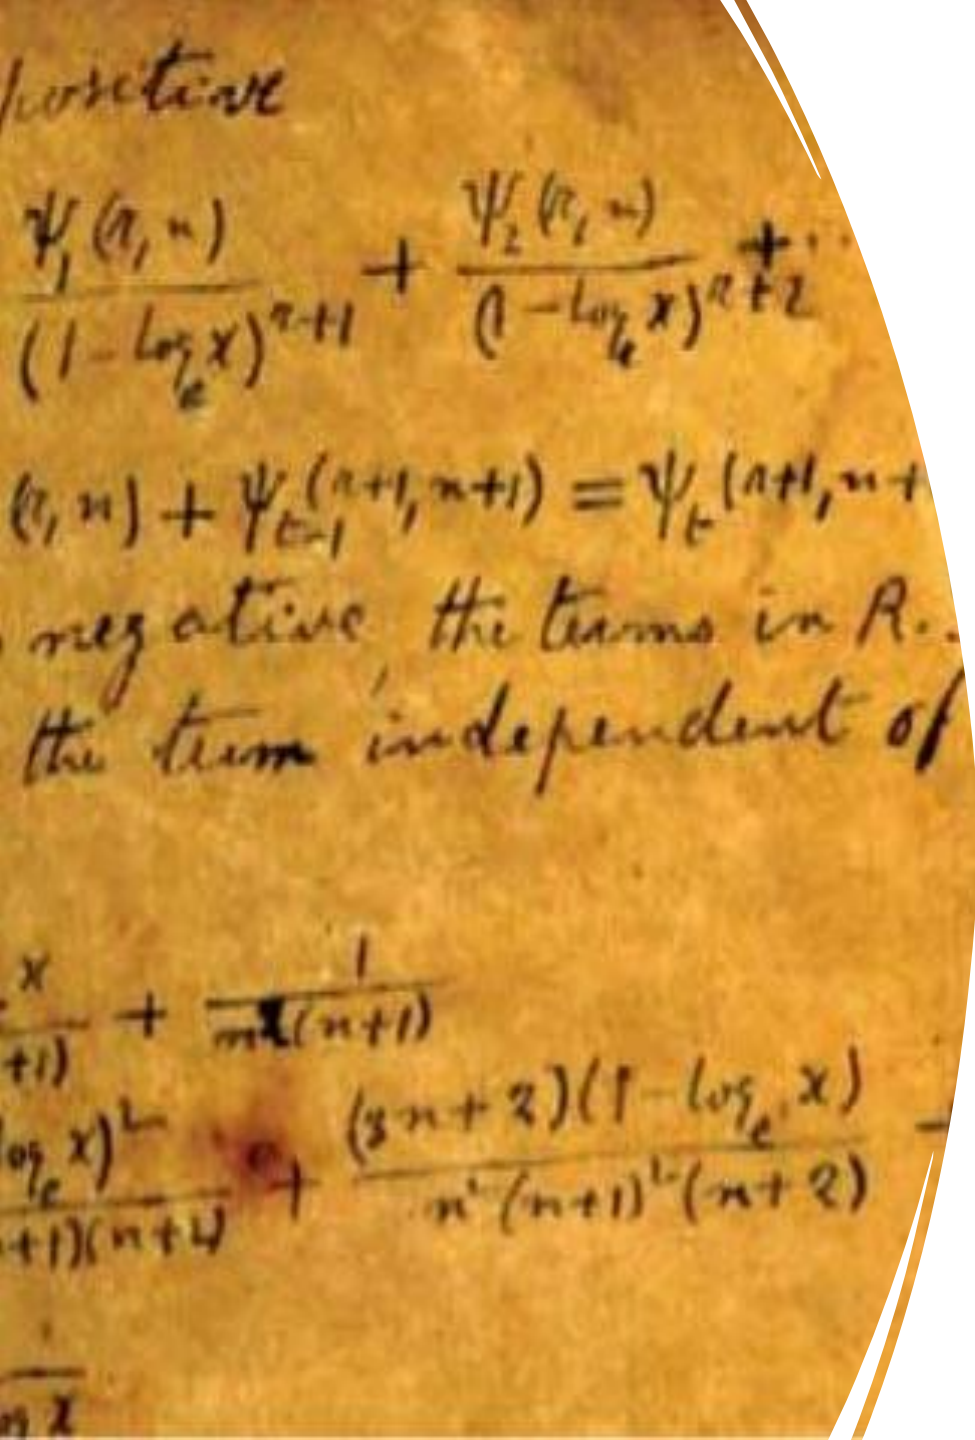 positive
ψ₁(r, n)/(1 - logₑ x)ʳ⁺¹ + ψ₂(r, n)/(1 - logₑ x)ʳ⁺² + ..
(r, n) + ψₜ₋₁(r+1, n+1) = ψₜ(r+1, n+
negative, the terms in R..
the term independent of
x/+1) + 1/(n+1)
logₑ x)²/+1)(n+2) + (3n+2)(1 - logₑ x)/n²(n+1)²(n+2)
x